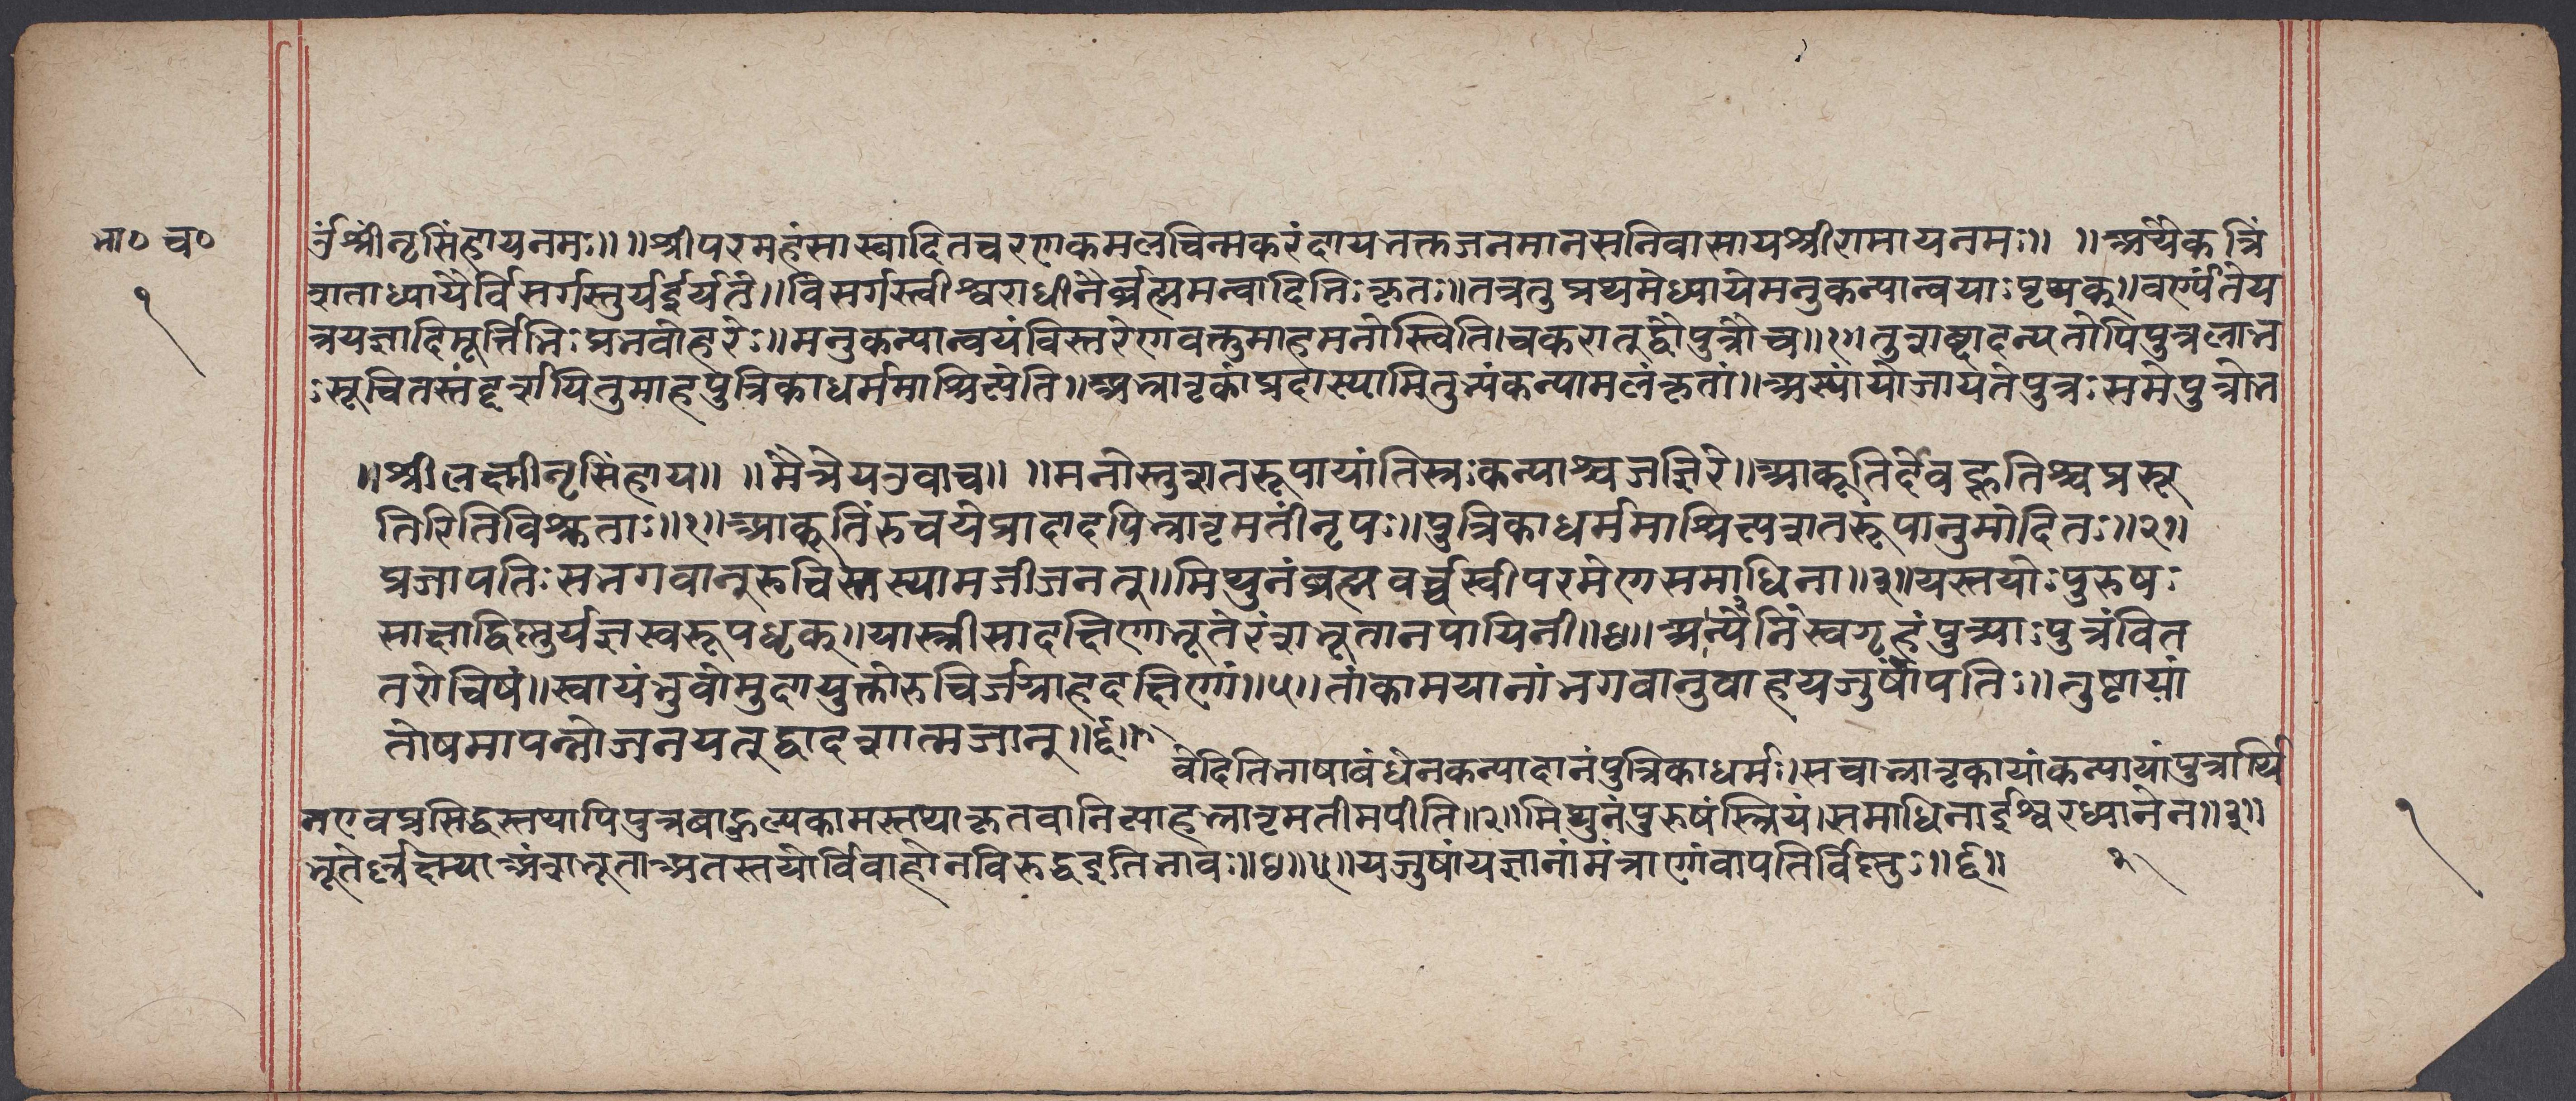 भा० च०
१
ॐश्रीनृसिंहायनमः॥ ॥श्रीपरमहंसास्वादितचरणकमलचिन्मकरंदायभक्तजनमानसनिवासायश्रीरामायनमः॥ ॥अथैकत्रिं
शताध्यायैर्विसर्गस्तुर्यईर्यते॥विसर्गस्त्वीश्वराधीनैर्ब्रह्ममन्वादिभिःकृतः॥तत्रतुप्रथमेध्यायेमनुकन्यान्वयाःपृथक्॥वर्ण्यंतेय
त्रयज्ञादिमूर्त्तिभिःप्रभवोहरेः॥मनुकन्यान्वयंविस्तरेणवक्तुमाहमनोस्त्विति।चकरातुद्वौपुत्रौच॥१॥तुशब्दादन्यतोपिपुत्रलाभ
ःसूचितस्तंदर्शयितुमाहपुत्रिकाधर्ममाश्रित्येति॥अभ्रातृकांप्रदास्यामितुभ्यंकन्यामलंकृतां॥अस्यांयोजायतेपुत्रःसमेपुत्रोभ
॥श्रीलक्ष्मीनृसिंहाय॥ ॥मैत्रेयउवाच॥ ॥मनोस्तुशतरूपायांतिस्रःकन्याश्चजज्ञिरे॥आकूतिर्देवहूतिश्चप्रसू
तिरितिविश्रुताः॥१॥आकूतिंरुचयेप्रादादपिभ्रातृमतींनृपः॥पुत्रिकाधर्ममाश्रित्यशतरूपानुमोदितः॥२॥
प्रजापतिःसभगवान्रुचिस्तस्यामजीजनत्॥मिथुनंब्रह्मवर्च्चस्वीपरमेणसमाधिना॥३॥यस्तयोःपुरुषः
साक्षाद्विष्णुर्यज्ञस्वरूपधृक्॥यास्त्रीसादक्षिणाभूतेरंशभूतानपायिनी॥४॥आनिन्येस्वगृहंपुत्र्याःपुत्रंवित
तरोचिषं॥स्वायंभुवोमुदायुक्तोरुचिर्जग्राहदक्षिणां॥५॥तांकामयानांभगवानुवाहयजुषांपतिः॥तुष्टायां
तोषमापन्नोजनयत्द्वादशात्मजान्॥६॥
वेदितिभाषाबंधेनकन्यादानंपुत्रिकाधर्मः।सचाभ्रातृकायांकन्यायांपुत्रार्थि
नएवप्रसिद्धस्तथापिपुत्रबाहुल्यकामस्तथाकृतवानित्याहभ्रातृमतीमपीति॥२॥मिथुनंपुरुषंस्त्रियं।समाधिनाईश्वरध्यानेन॥३॥
भूतेर्लक्ष्म्याअंशभूताअतस्तयोर्विवाहोनविरुद्धइतिभावः॥४॥५॥यजुषांयज्ञानांमंत्राणांवापतिर्विष्णुः॥६॥
१